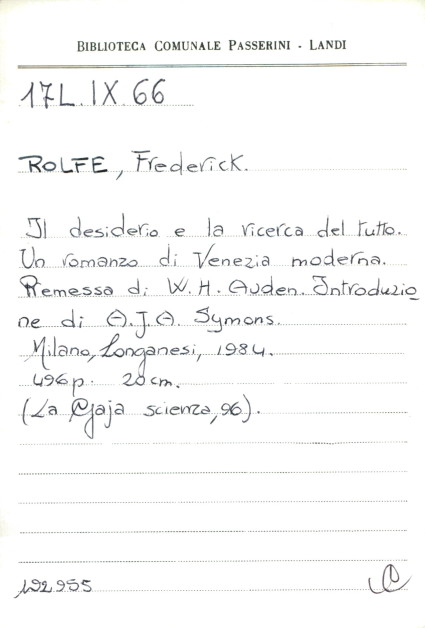 BIBLIOTECA COMUNALE PASSERINI - LANDI
17L.IX.66
ROLFE, Frederick.
Il desiderio e la ricerca del tutto.
Un romanzo di Venezia moderna.
Premessa di W.H. Auden. Introduzio
ne di A.J.A. Symons.
Milano, Longanesi, 1984.
496 p. 20 cm.
(La Gaja scienza, 96).
192955